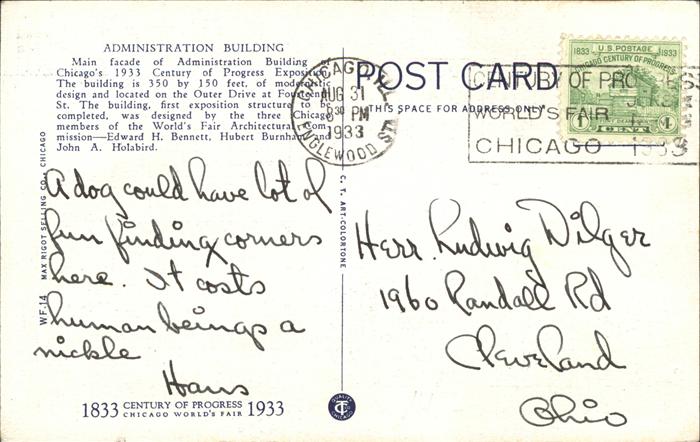 ADMINISTRATION BUILDING
Main facade of Administration Building
Chicago's 1933 Century of Progress Exposition
The building is 350 by 150 feet, of modernistic
design and located on the Outer Drive at Fourteenth
St. The building, first exposition structure to be
completed, was designed by the three Chicago
members of the World's Fair Architectural Com-
mission—Edward H. Bennett, Hubert Burnham and
John A. Holabird.
POST CARD
"THIS SPACE FOR ADDRESS ONLY"
CHICAGO, ILL.
AUG 31
6 30 PM
1933
ENGLEWOOD STA
CENTURY OF PROGRESS
WORLD'S FAIR
CHICAGO 1933
1833 U.S. POSTAGE 1933
CHICAGO CENTURY OF PROGRESS
1 CENT 1
WF-14 MAX RIGOT SELLING CO., CHICAGO
C. T. ART-COLORTONE
A dog could have lot of
fun finding corners
here. It costs
human beings a
nickle
Hans
Herr. Ludwig Dilger
1960 Randall Rd
Cleveland
Ohio
1833 CENTURY OF PROGRESS 1933
CHICAGO WORLD'S FAIR
QUALITY
CT
CHICAGO